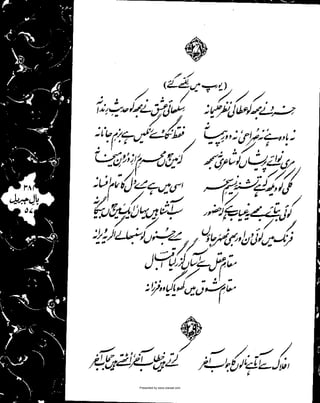 (یورپ میں لکھے گئے)
خرد نے مجھ کو عطا کی نظر حکیمانہ سکھائی عشق نے مجھ کو حدیثِ رندانہ
نہ بادہ ہے نہ صراحی نہ دورِ پیمانہ فقط نگاہ سے رنگیں ہے بزمِ جانانہ
مری نوائے پریشاں کو شاعری نہ سمجھ کہ میں ہوں محرمِ رازِ درونِ میخانہ
کلی کو دیکھ کہ ہے تشنۂ نسیمِ سحر اسی میں ہے مرے دل کا تمام افسانہ
کوئی بتائے مجھے یہ غیاب ہے کہ حضور سب آشنا ہیں یہاں ایک میں ہوں بیگانہ
فرنگ میں کوئی دن اور بھی ٹھہر جاؤں مرے جنوں کو سنبھالے اگر یہ ویرانہ
مقامِ عقل سے آساں گزر گیا اقبال
مقامِ شوق میں کھویا گیا وہ فرزانہ
افلاک سے آتا ہے نالوں کا جواب آخر کرتے ہیں خطاب آخر اٹھتے ہیں حجاب آخر
بالِ جبریل
۵۷